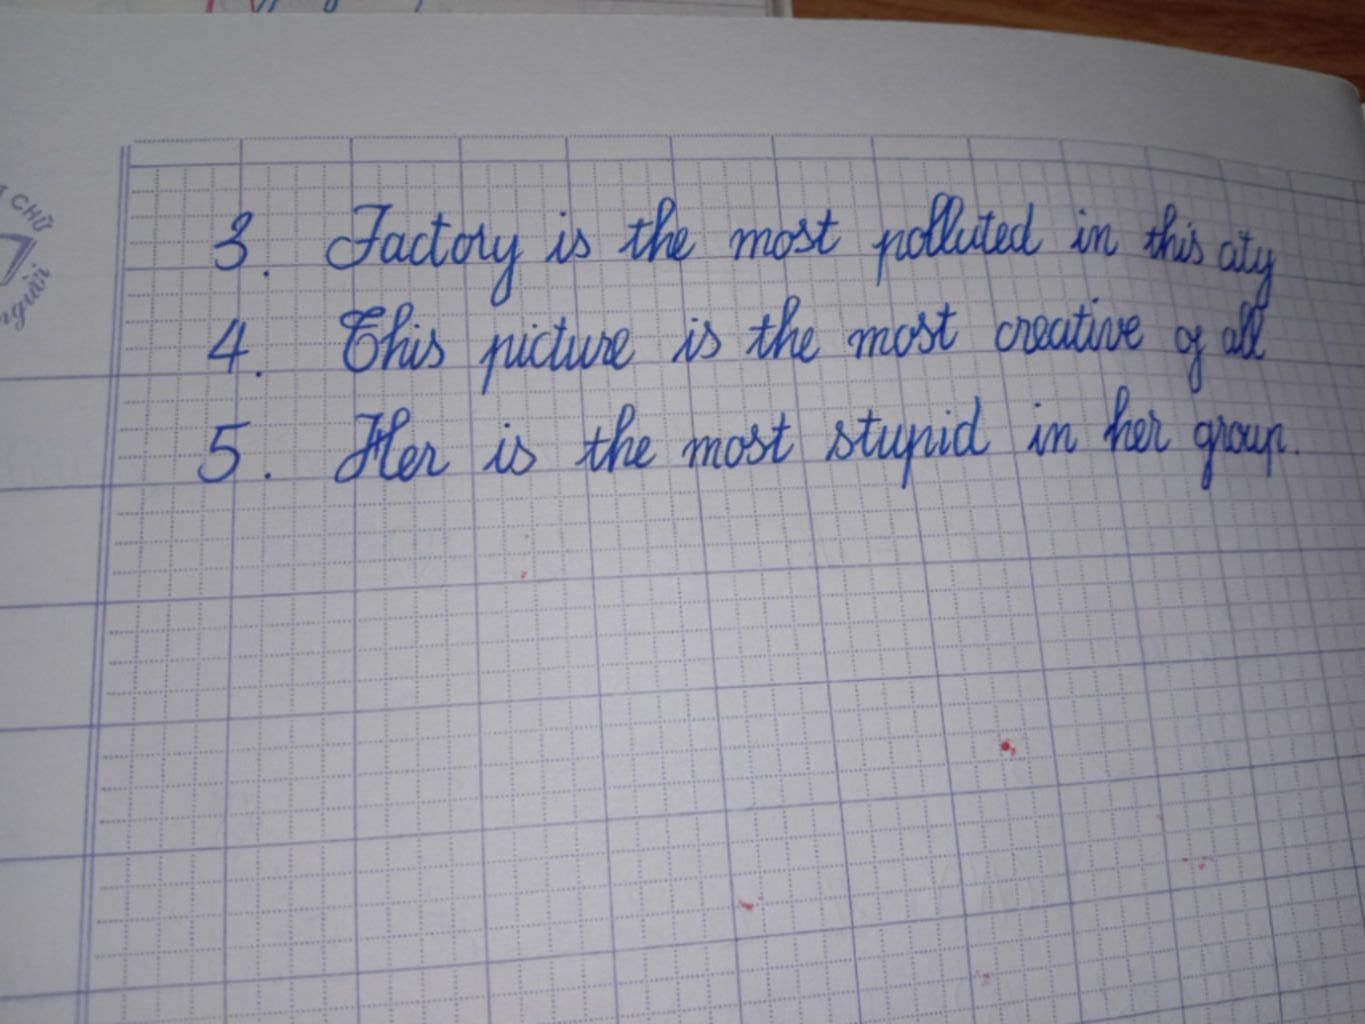 CHỮ
người
3. Factory is the most polluted in this city
4. This picture is the most creative of all
5. Her is the most stupid in her group.